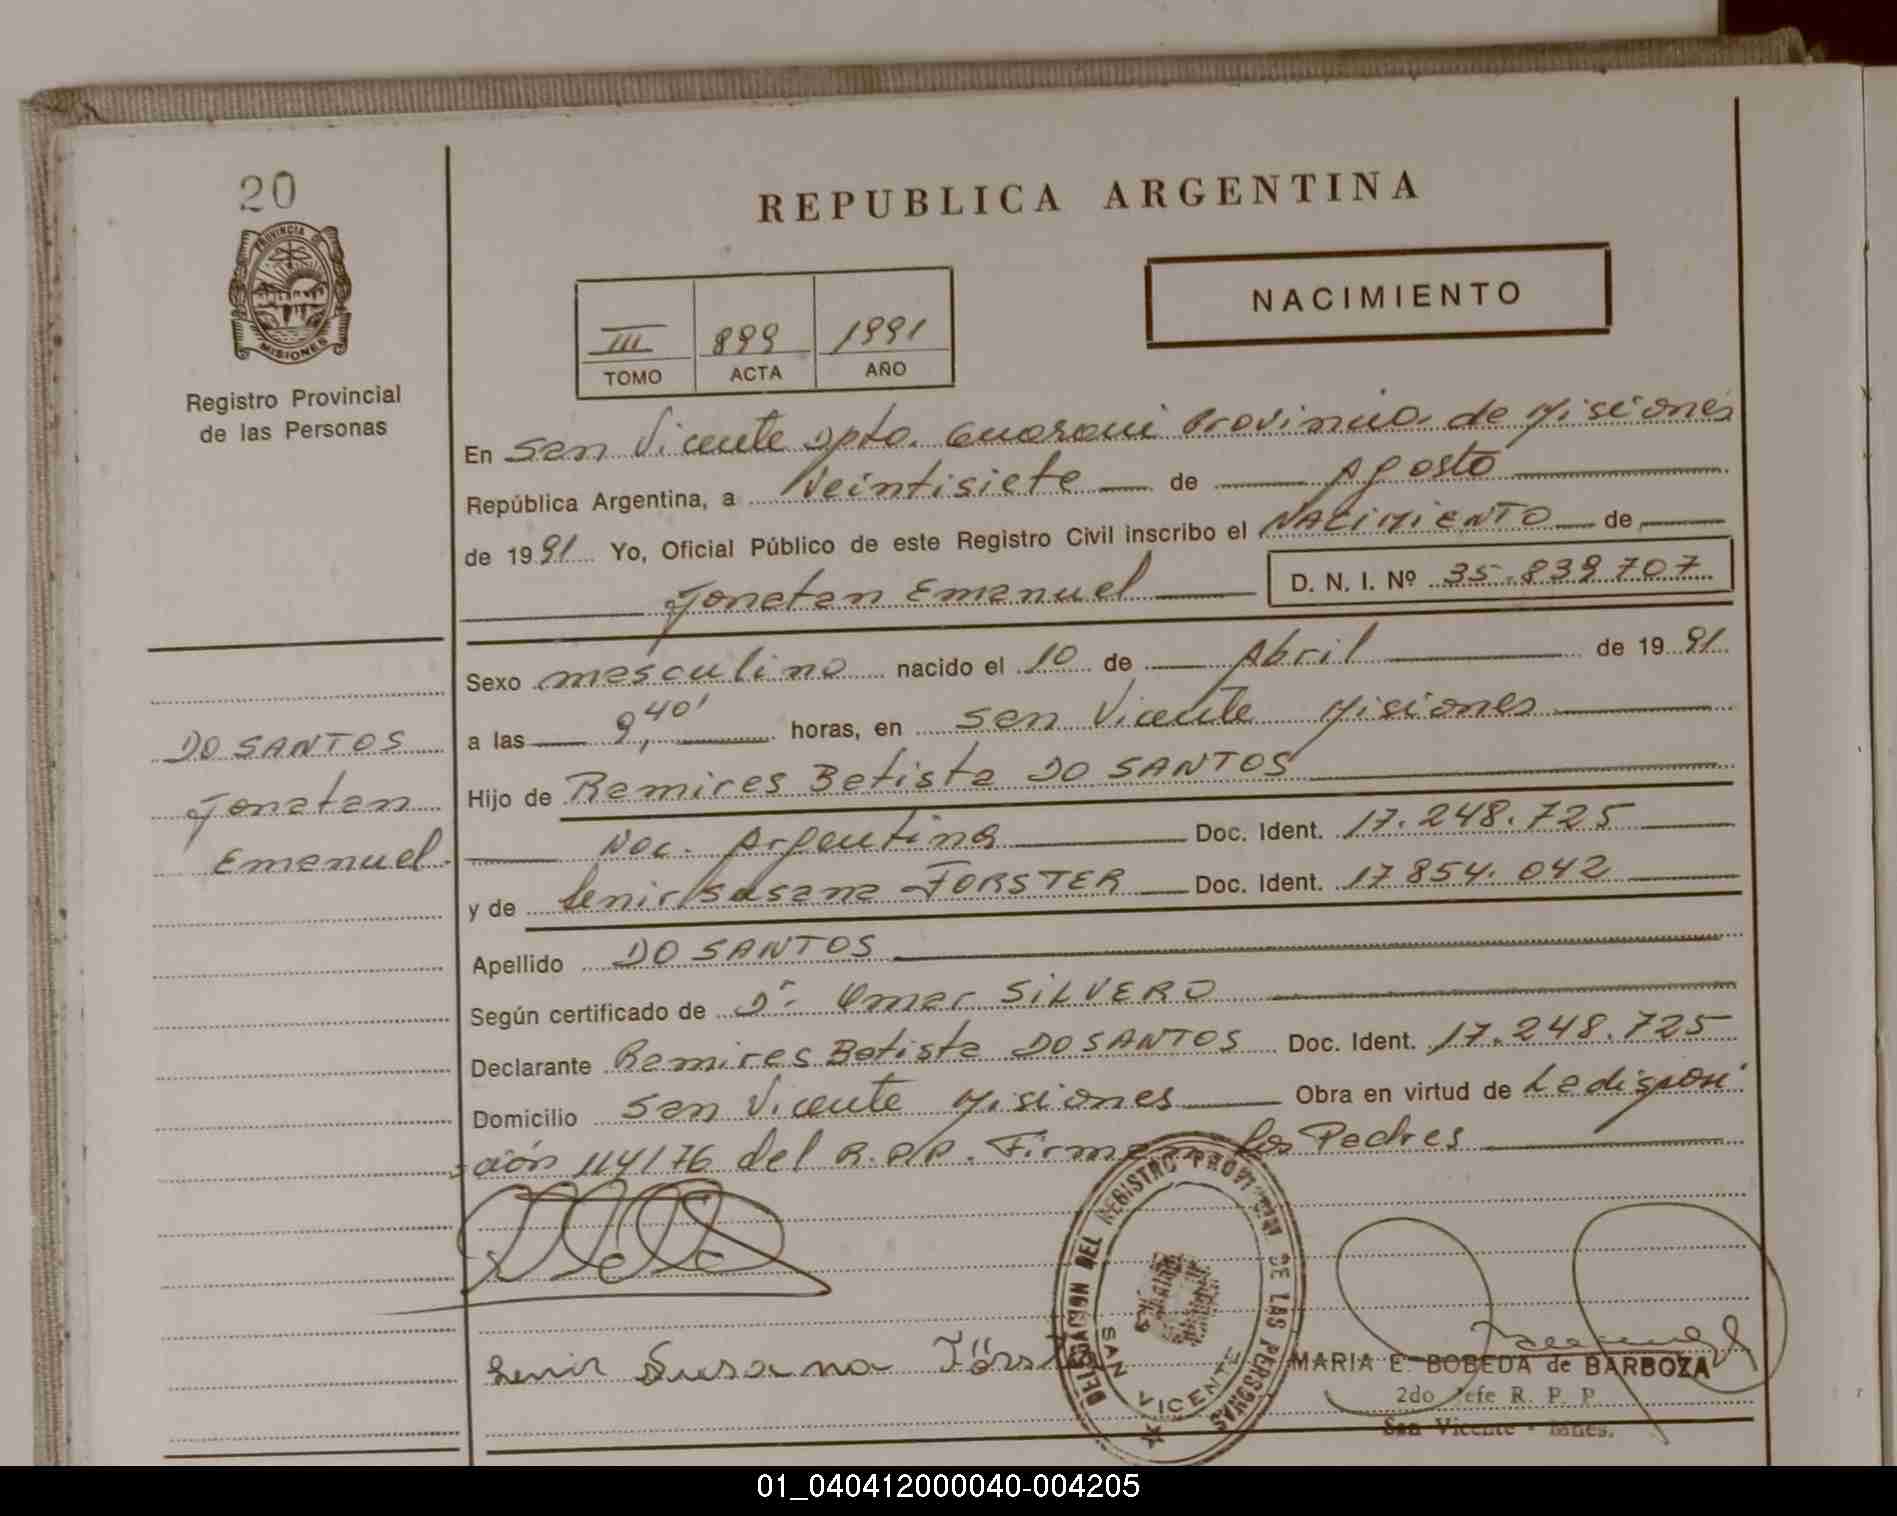 20
PROVINCIA DE
MISIONES
Registro Provincial
de las Personas
REPUBLICA ARGENTINA
NACIMIENTO
III 899 1991
TOMO ACTA AÑO
En San Vicente Dpto. Guarani Provincia de Misiones
República Argentina, a Veintisiete de Agosto
de 1991 Yo, Oficial Público de este Registro Civil inscribo el NACIMIENTO de
Jonatan Emanuel D. N. I. Nº 35.839707
Sexo masculino nacido el 10 de Abril de 1991
a las 9,40' horas, en San Vicente Misiones
Hijo de Ramires Batista DO SANTOS
Nac. Argentina Doc. Ident. 17.248.725
y de Lenir Susana FORSTER Doc. Ident. 17854.042
Apellido DO SANTOS
Según certificado de Dr. Omar SILVERO
Declarante Ramires Batista DO SANTOS Doc. Ident. 17.248.725
Domicilio San Vicente Misiones Obra en virtud de La disposi
ción 114/76 del R.P.P. Firman los Padres
DO SANTOS
Jonatan
Emanuel
Lenir Susana Först
DELEGACION DEL REGISTRO PROVINCIAL DE LAS PERSONAS
SAN VICENTE
MARIA E. BOBEDA de BARBOZA
2do Jefe R. P. P.
San Vicente - Mnes.
01_040412000040-004205